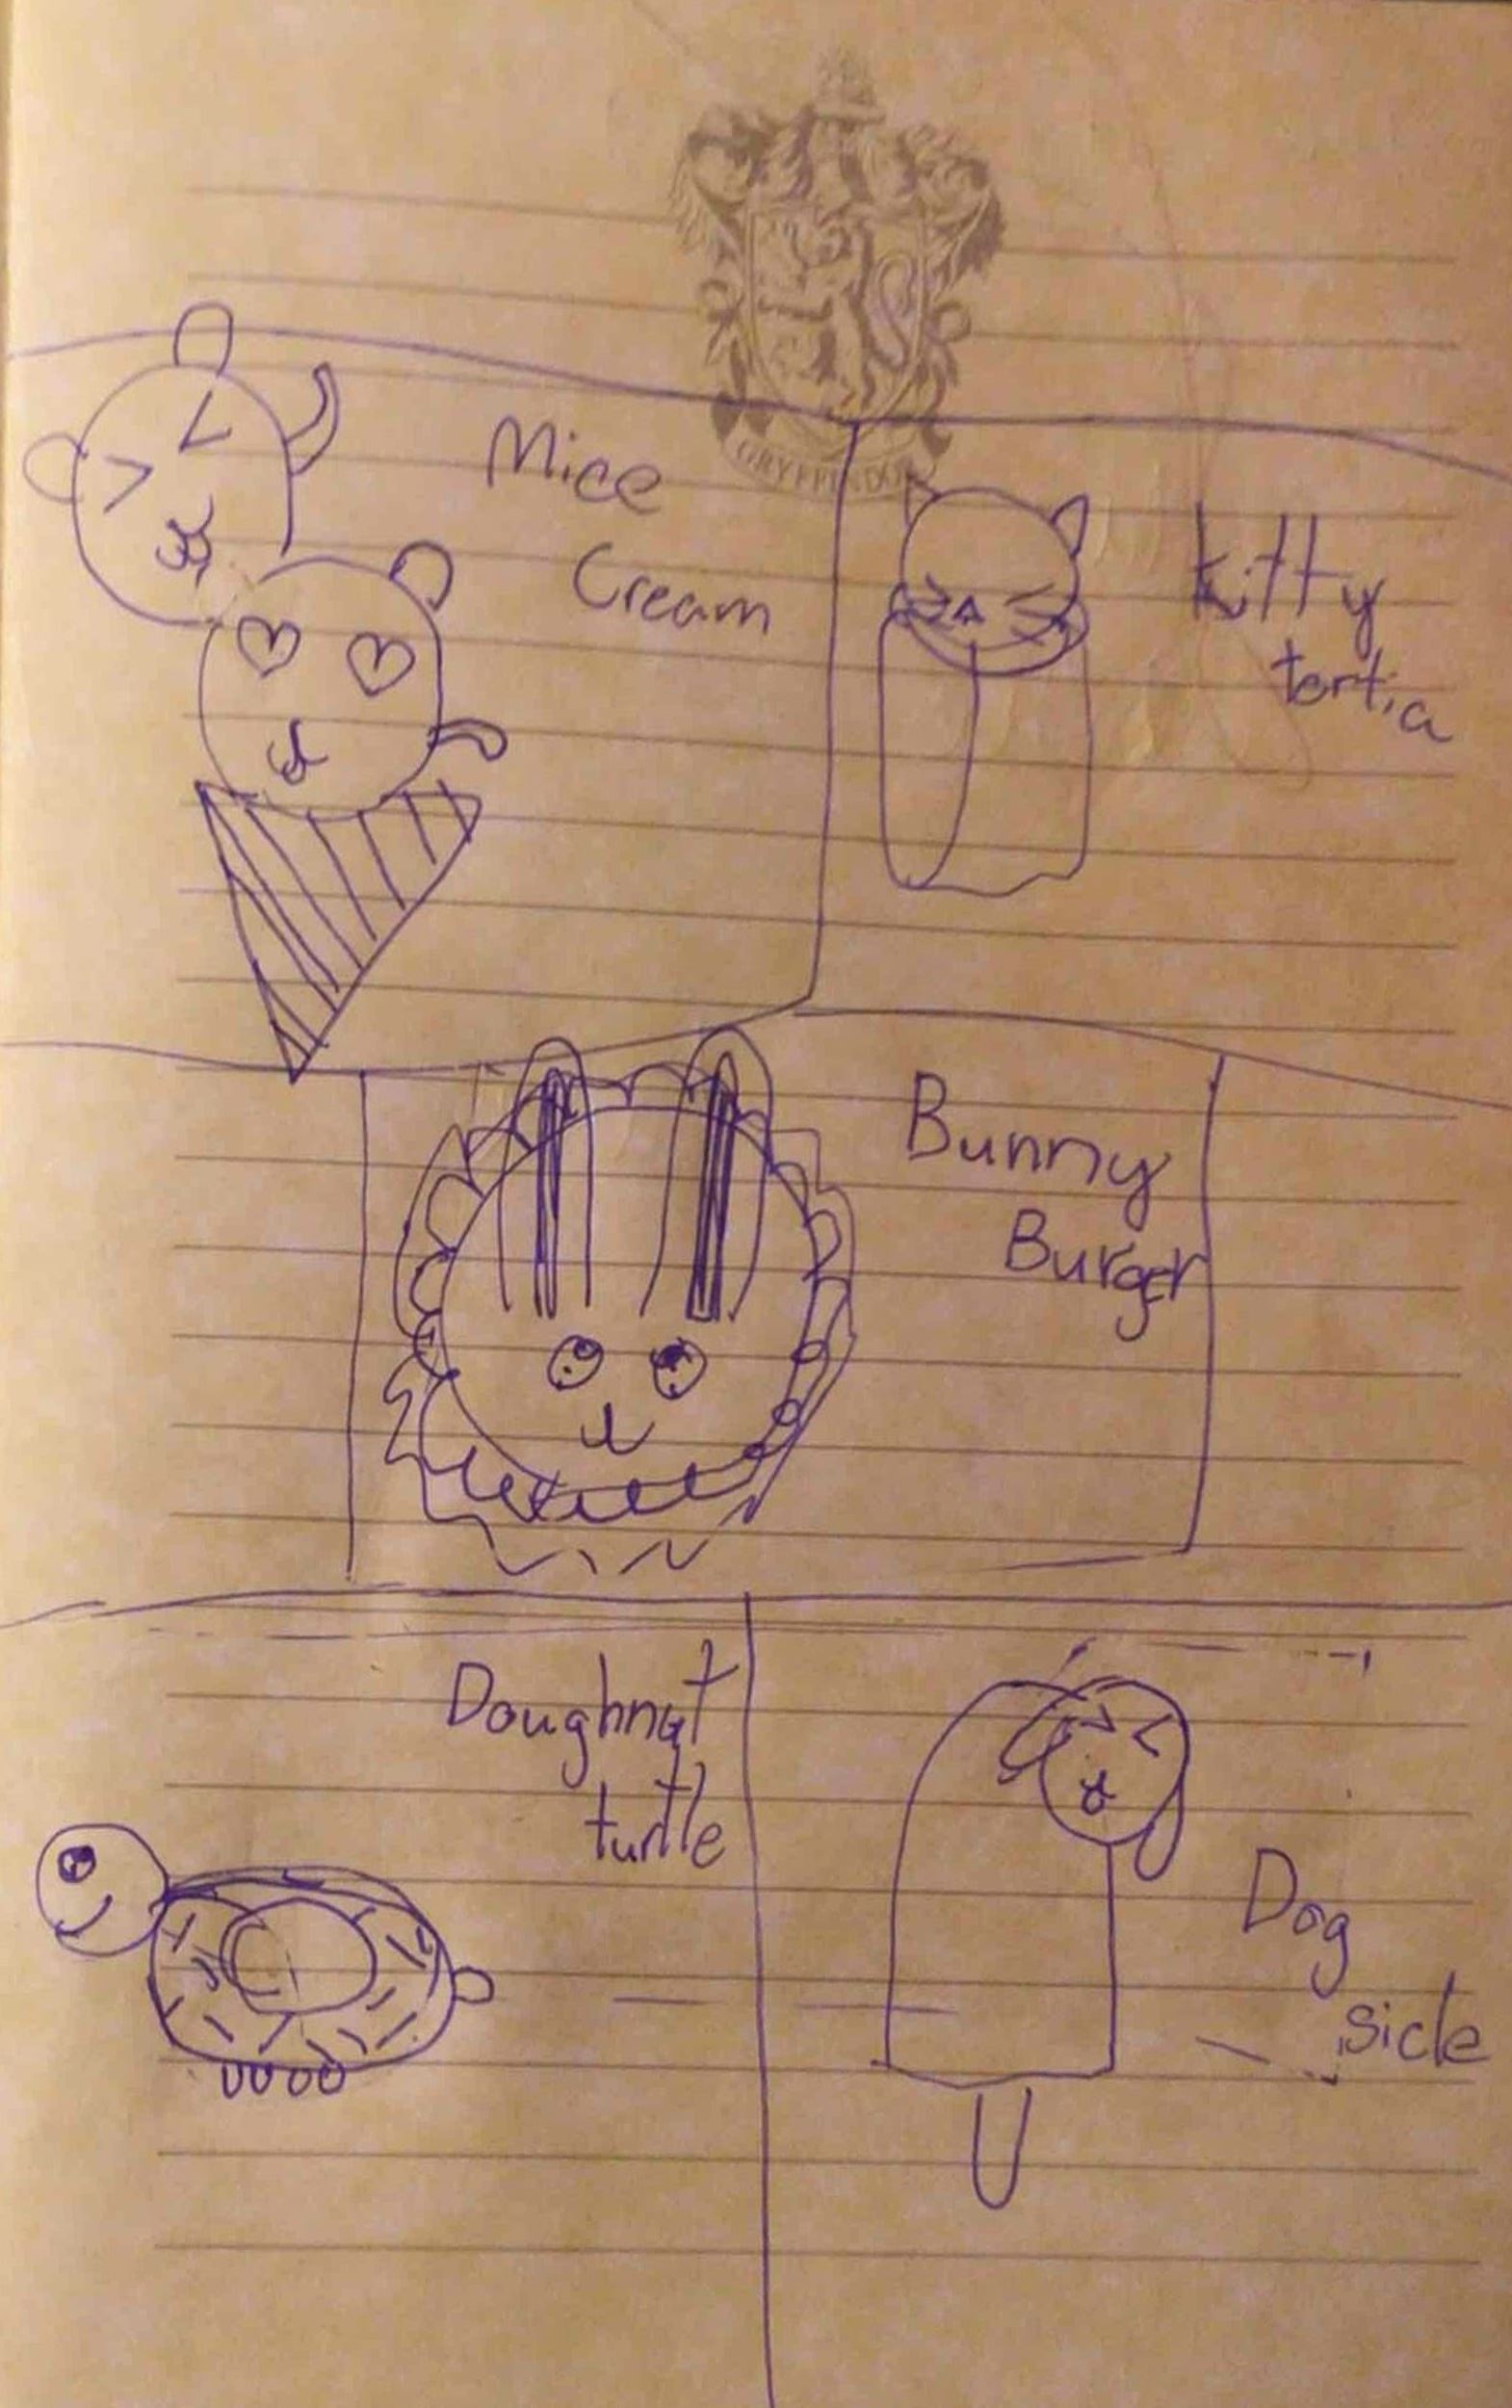 GRYFFINDOR
Mice
Cream
kitty
tortia
Bunny
Burger
Doughnut
turtle
Dog
sicle